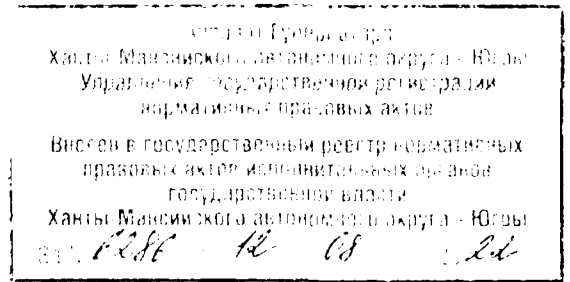 Аппарат Губернатора
Ханты-Мансийского автономного округа - Югры
Управление государственной регистрации
нормативных правовых актов
Внесен в государственный реестр нормативных
правовых актов исполнительных органов
государственной власти
Ханты-Мансийского автономного округа - Югры
6286 12 08 21